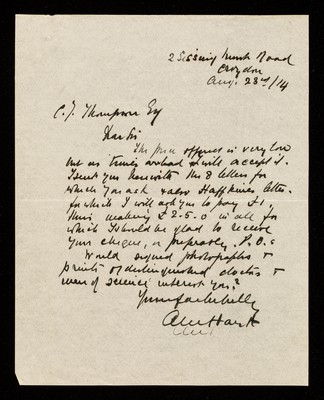 2 Sissing hurst Road
Croydon
Aug. 23rd/14
C. J. Thompson Esq
Dear Sir
The price offered is very low
but as times are bad I will accept it.
I send you herewith the 8 letters for
which you ask & also Haffkines letter
for which I will ask you to pay £1,
thus making £2-5.0 in all for
which I should be glad to receive
your cheque, or preferably P.O.s
Would signed photographs &
prints of distinguished doctors &
men of science interest you?
Yours faithfully